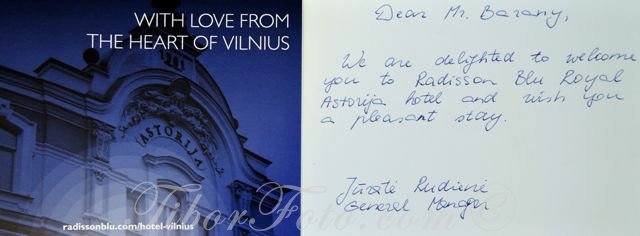 WITH LOVE FROM
THE HEART OF VILNIUS
ASTORIJA
radissonblu.com/hotel-vilnius
Dear Mr. Barany,
We are delighted to welcome
you to Radisson Blu Royal
Astorija hotel and wish you
a pleasant stay.
Jūratė Rudienė
General Manger
TiborFoto.com ©